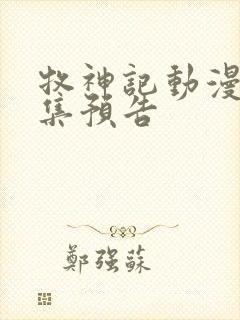 牧神記動漫
集預告
鄭強蘇